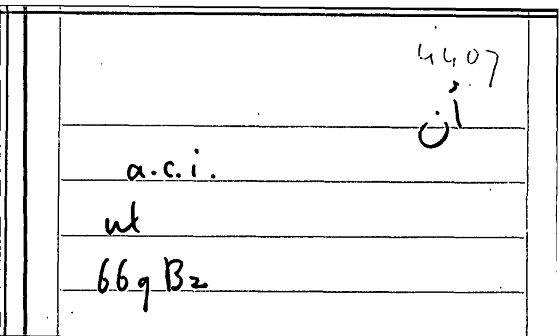 4407
أن
a.c.i.
ut
66q B2